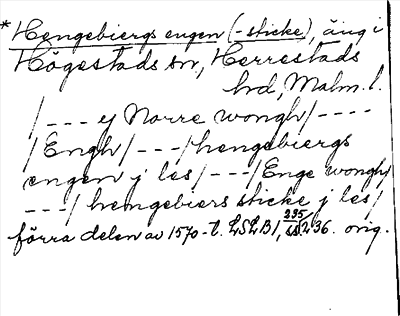 * Hengebiergs engen (-sticke), äng i
Högestads sn, Herrestads
hd, Malm. l.
/ --- ej Norre wongh/----
/Engh/---/hengebiergs
engen j les/---/Enge wongh/
---/hengebiers sticke j les/
förra delen av 1570-t. LSLB1, 235 236. orig.